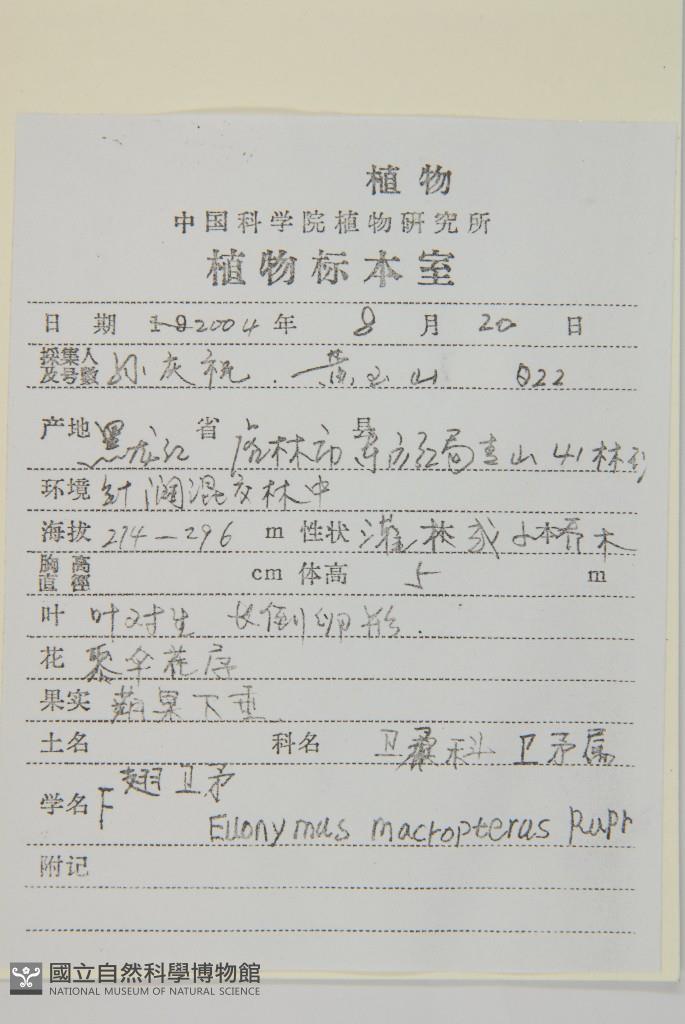 植物
中国科学院植物研究所
植物标本室
日期 2004年 8月 20日
採集人及号数 孙庆祝. 黄玉山 022
产地 黑龙江省 林市县 东方红局青山 41林
环境 针阔混交林中
海拔 274-296 m 性状 灌 或小乔木
胸高直徑 cm 体高 5 m
叶 叶对生 长倒卵形.
花 聚伞花序
果实 蒴果下垂
土名 科名 卫矛科 卫矛属
翅卫矛
学名 Euonymus macropterus Rupr
附记
國立自然科學博物館
NATIONAL MUSEUM OF NATURAL SCIENCE